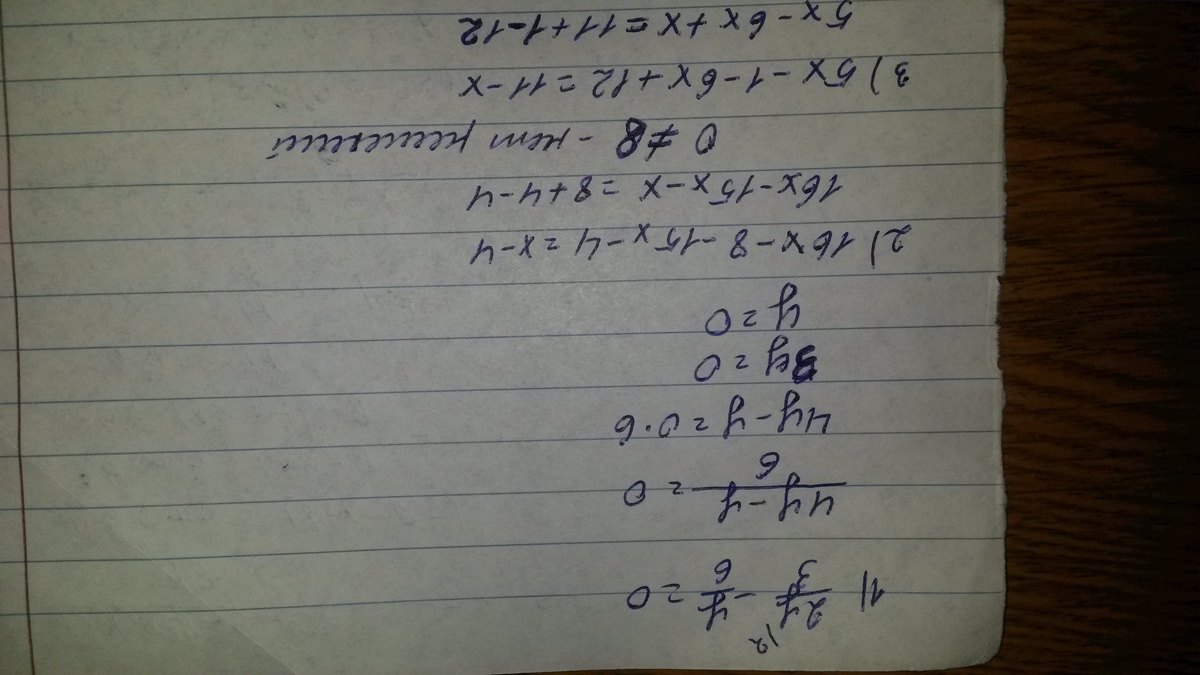 1) 2y/3 \2 - y/6 = 0
4y-y/6 = 0
4y-y = 0·6
3y = 0
y = 0
2) 16x-8-15x-4=x-4
16x-15x-x=8+4-4
0 ≠ 8 - нет решений
3) 5x-1-6x+12=11-x
5x-6x+x=11+1-12